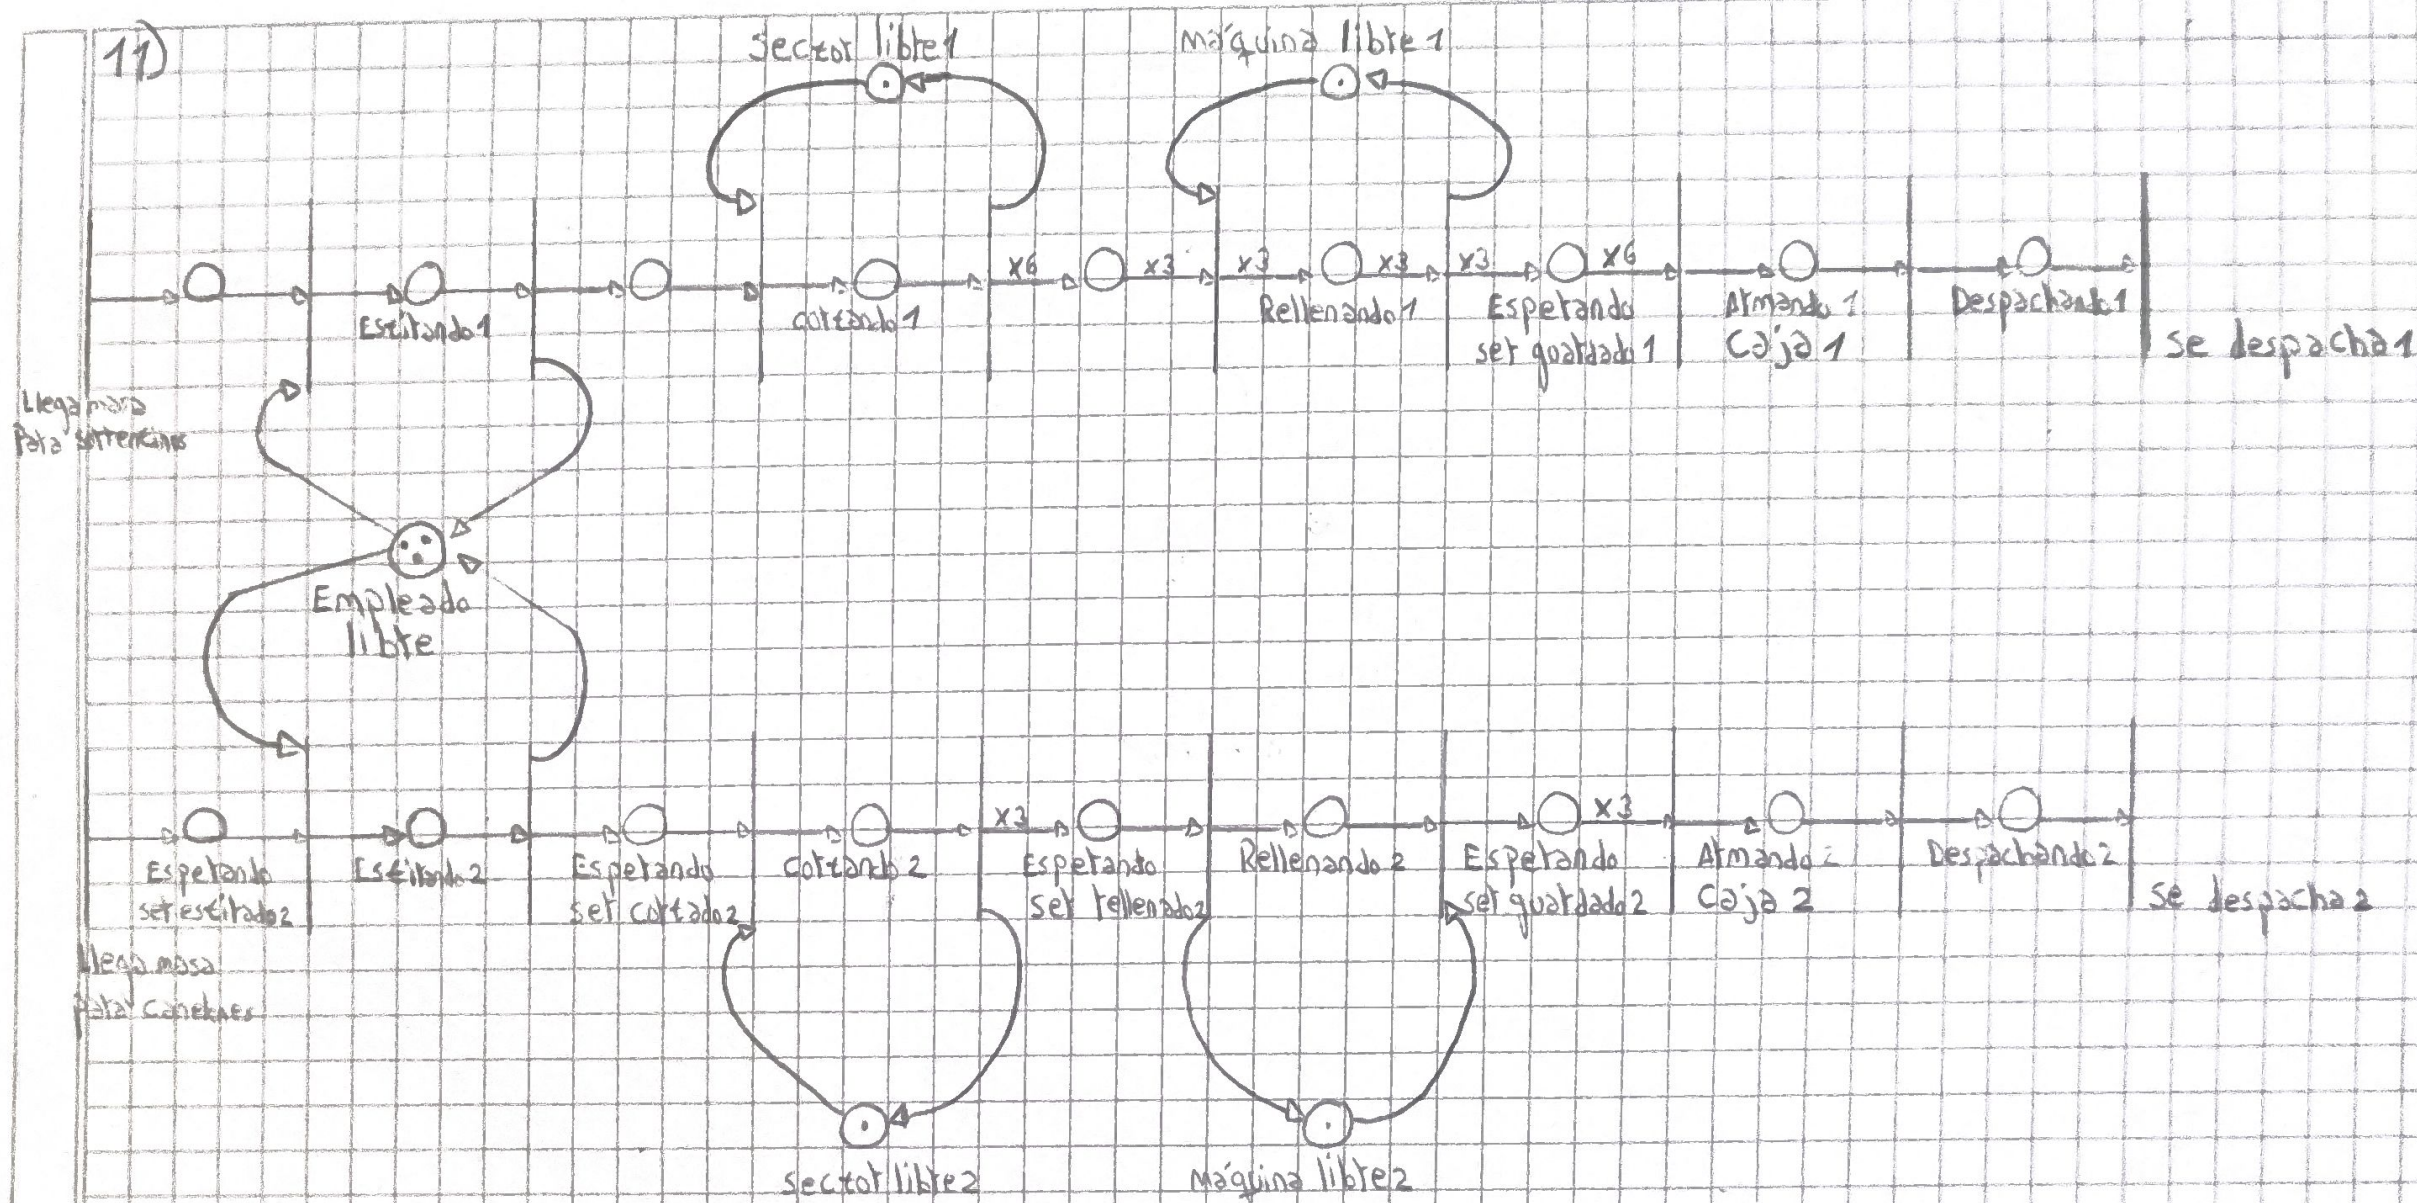 11)
sector libre1
máquina libre1
x6
x3
x3
x3
x3
x6
Estirando1
cortando1
Rellenando1
Esperando
ser guardado1
Armando 1
Caja1
Despachando1
se despacha1
Llega masa
Para sorrentinos
Empleado
libre
x3
x3
Esperando
ser estirado2
Estirando2
Esperando
ser cortado2
cortando2
Esperando
ser rellenado2
Rellenando2
Esperando
ser guardado2
Armando 2
Caja 2
Despachando2
se despacha2
Llega masa
Para
sector libre2
máquina libre2